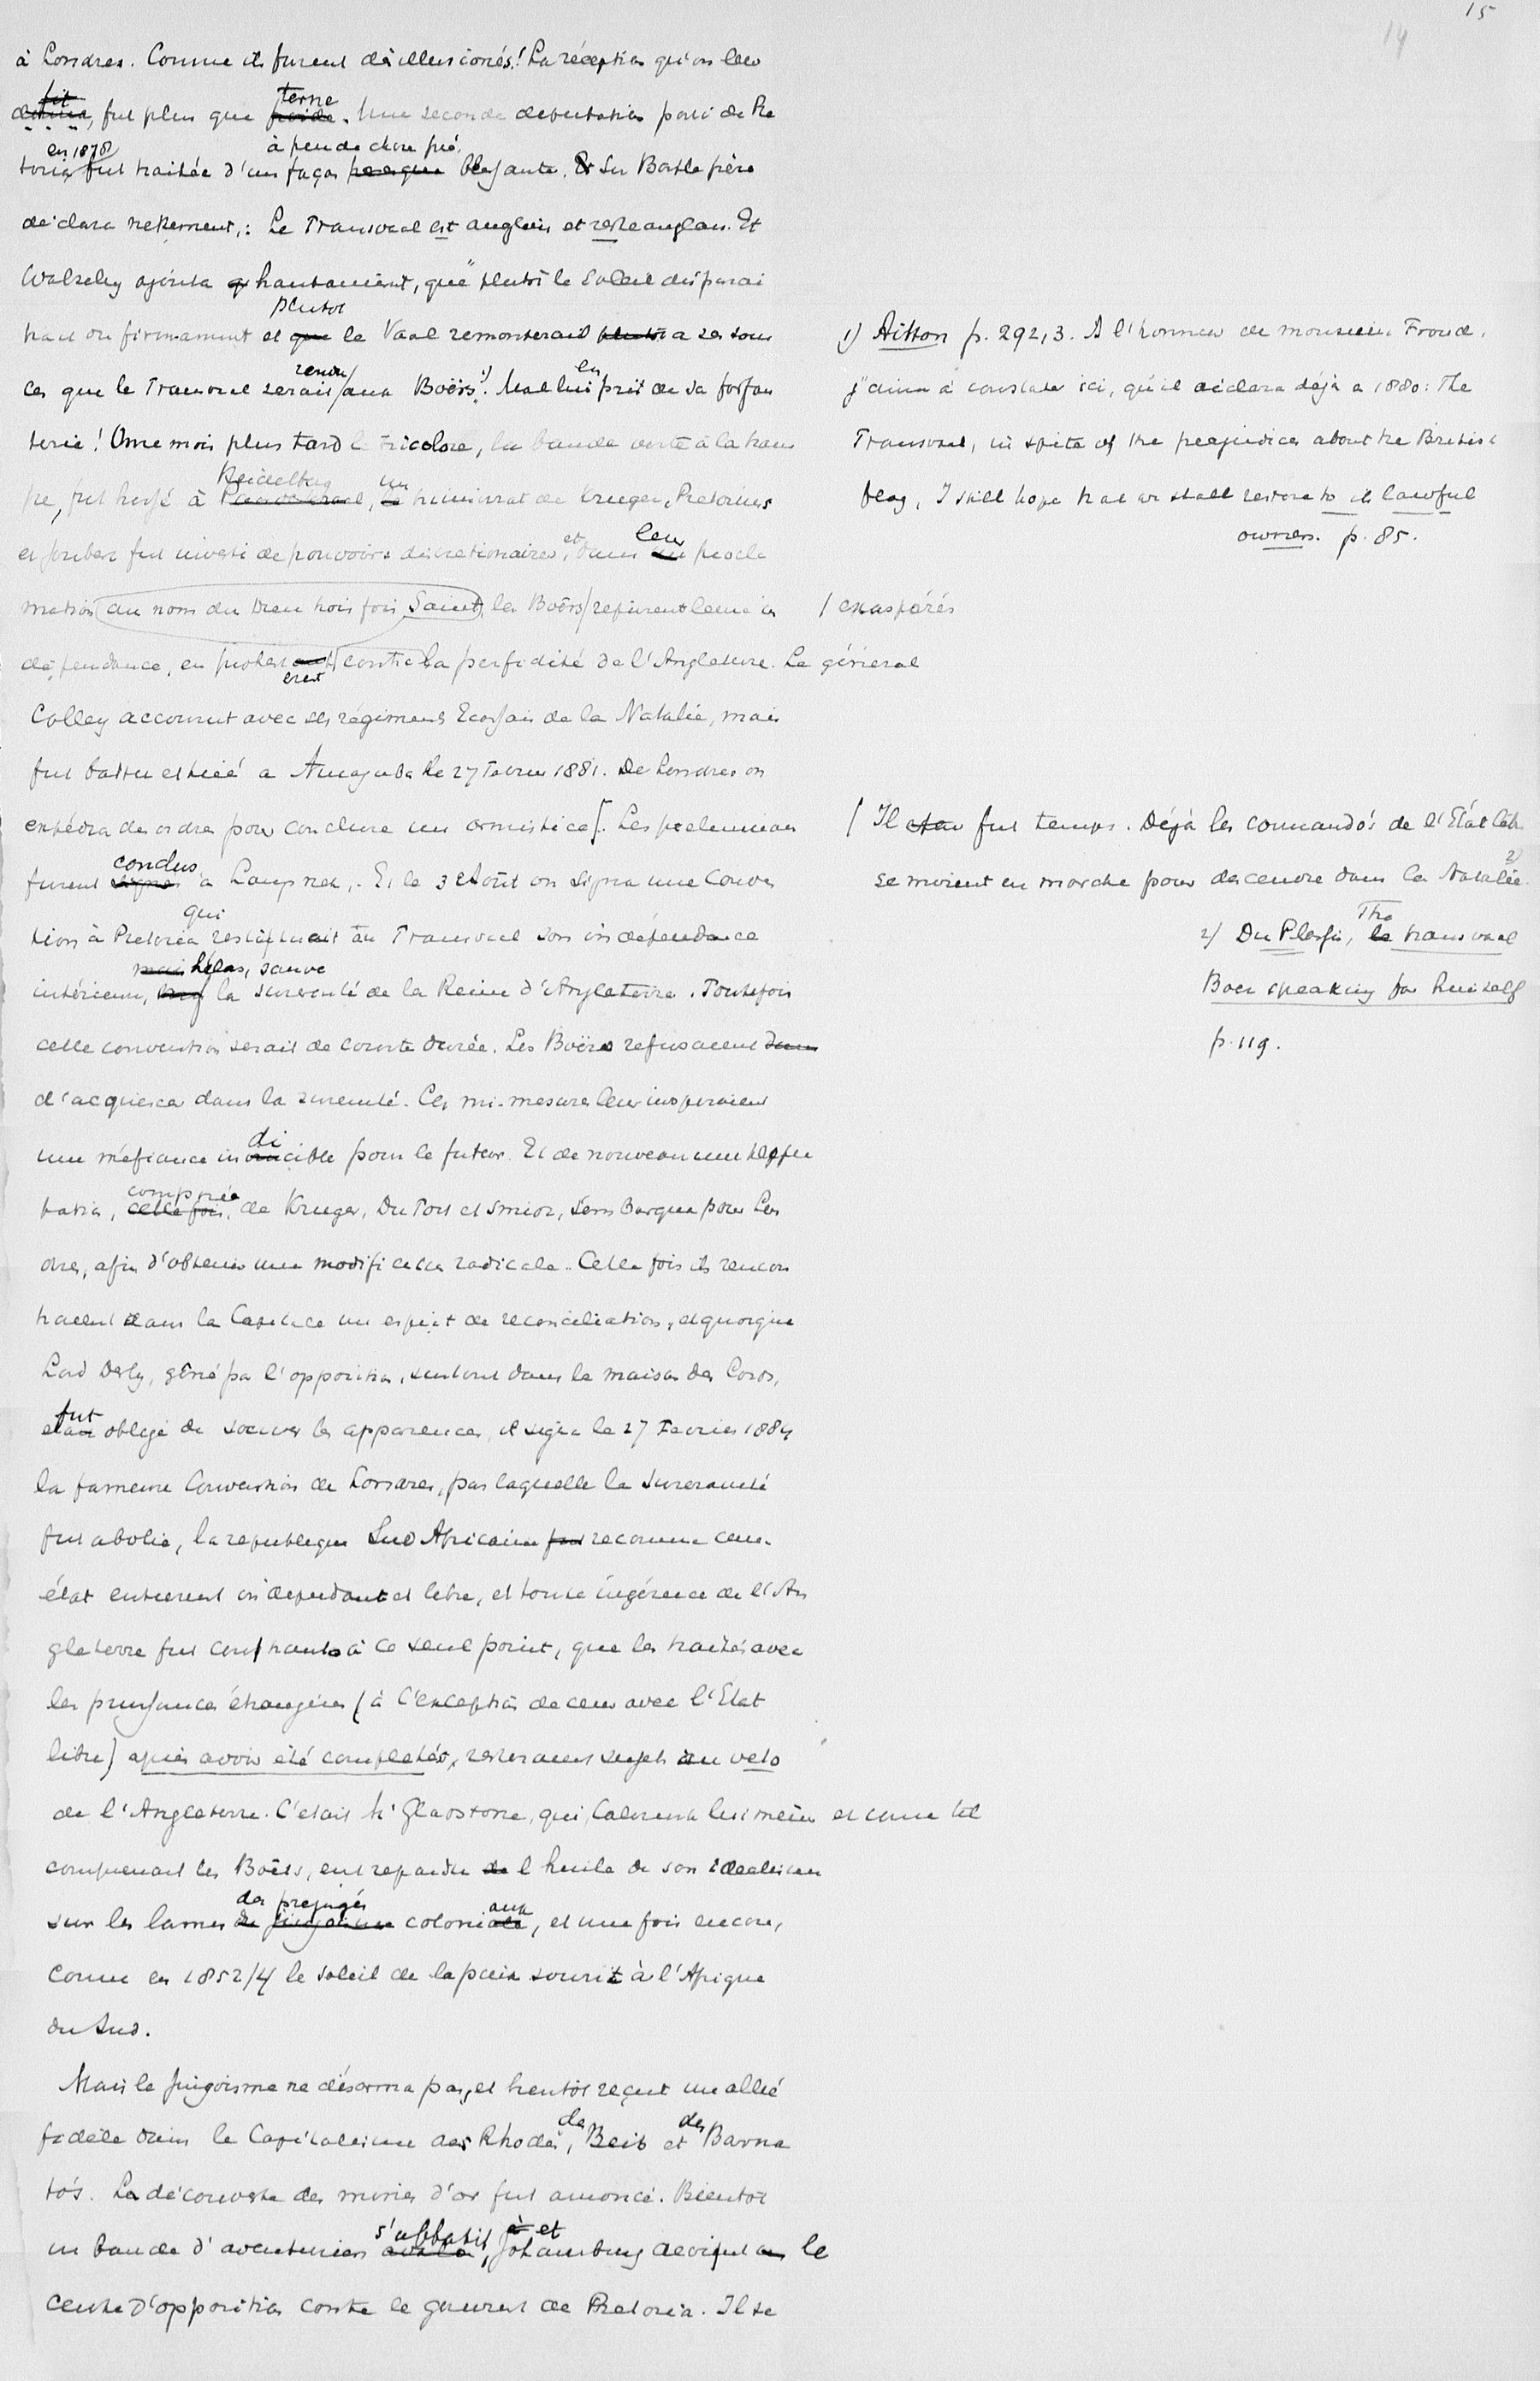 15
14
à Londres. Comme ils furent désillusionés! La réception qu'on leur
fit
donna, fut plus que terne froide. Une seconde deputation parti de Pre
en 1878 à peu de chose près
toria fut traitée d'un façon presque blessante. & Sir Bartle frère
déclara nettement,: Le Transvaal est anglais et reste anglais. Et
Wolseley ajouta hautainement, que "plutôt le Soleil disparai
plutot
trait du firmament et que le Vaal remonterait plutot a ses sour
ces que le Transvaal serait rendu aux Boërs 1). Mal lui en prit de sa forfan
terie! Onze mois plus tard le tricolore, la bande verte à la ham
Heidelberg un
pe, fut hissé à Paardekraal, le triumvirat de Krueger, Pretorius
et Joubert fut investi de pouvoirs discretionaires, et dans leur procla
mation au nom du Dieu trois fois Saint, les Boërs / reprirent leur in
/ exaspérés
dépendance, en protestant contre la perfidité de l'Angleterre. Le général
erent
Colley accourut avec ses régiments Ecossais de la Natalie, mais
fut battu et tué a Amajuba le 27 Fevrier 1881. De Londres on
expédia des ordres pour conclure un armistice [. Les preliminaires
furent conclus signés à Laings nek,. Et le 3 Août on signa une Conven
qui
tion à Pretoria restituait au Transvaal son indépendance
mais hélas, sauve
intérieure, la suzeraineté de la Reine d'Angleterre. Toutefois
cette convention serait de courte durée. Les Boërs refusaient dans
d'acquiescer dans la suzeraineté. Ces mi-mesures leur inspiraient
di
une méfiance invincible pour le futur. Et de nouveau une deputa
composée
tation, cette fois, de Krueger, Du Toit et Smidt, s'embarqua pour Lon
dres, afin d'obtenir une modification radicale. Cette fois ils rencon
traient dans la Capitale un esprit de reconciliation, et quoique
Lord Derby, gêné par l'opposition, surtout dans la maison des Lords,
fut
etait obligé de sauver les apparences, il signa le 27 Fevrier 1884
la fameuse Convention de Londres, par laquelle la suzeraineté
fut abolie, la republique Sud Africaine fut reconnue comme
état entierement independant et libre, et toute ingérence de l'An
gleterre fut constrainte à ce seul point, que les traités avec
les puissances étrangères (à l'exception de ceux avec l'État
libre) après avoir été completés, resteraient sujets au veto
de l'Angleterre. C'etait Mr Gladstone, qui, Calviniste lui même et comme tel
comprenant les Boërs, eut repandu de l'huile de son idealisme
des prejugés aux
sur les lames de jingoisme coloniale, et une fois encore,
comme en 1852/4 le soleil de la paix sourit à l'Afrique
du Sud.
Mais le Jingoisme ne désarma pas, et bientôt reçut un allié
fidèle dans le Capitalisme des Rhodes, des Beit et des Barna
to's. La découverte des mines d'or fut annoncé. Bientôt
s'abbatit, et
un bande d'aventuriers, Johannesburg devint le
centre d'opposition contre le gouvernement de Pretoria. Il se
1) Aitton p. 292,3. A l'honneur de monsieur Froude,
j'aime à constater ici, qu'il déclara déjà a 1880: The
Transvaal, in spite of the prejudices about the British
flag, I still hope that we shall restore to its lawful
owners. p. 85.
/ Il etait fut temps. Déjà les commando's de l'État libre
se mirent en marche pour descendre dans la Natalie 2)
2) Du Plessis, The le transvaal
Boer speaking for himself
p. 119.